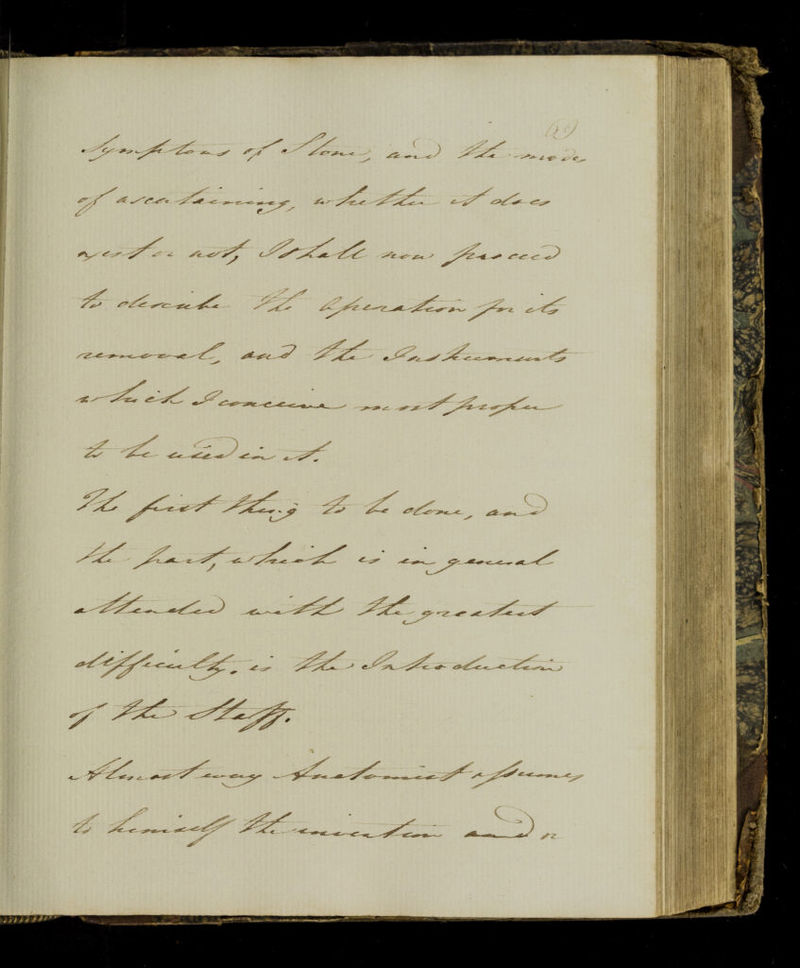 Symptoms of Stone, and the modes
of ascertaining, whether it does
exist or not, I shall now proceed
to describe the Operation for its
removal, and the Instruments
which I conceive most proper
to be used in it.
The first thing to be done, and
the part, which is in general
attended with the greatest
difficulty, is the Introduction
of the Staff.
Almost every Anatomist assumes
to himself the invention and